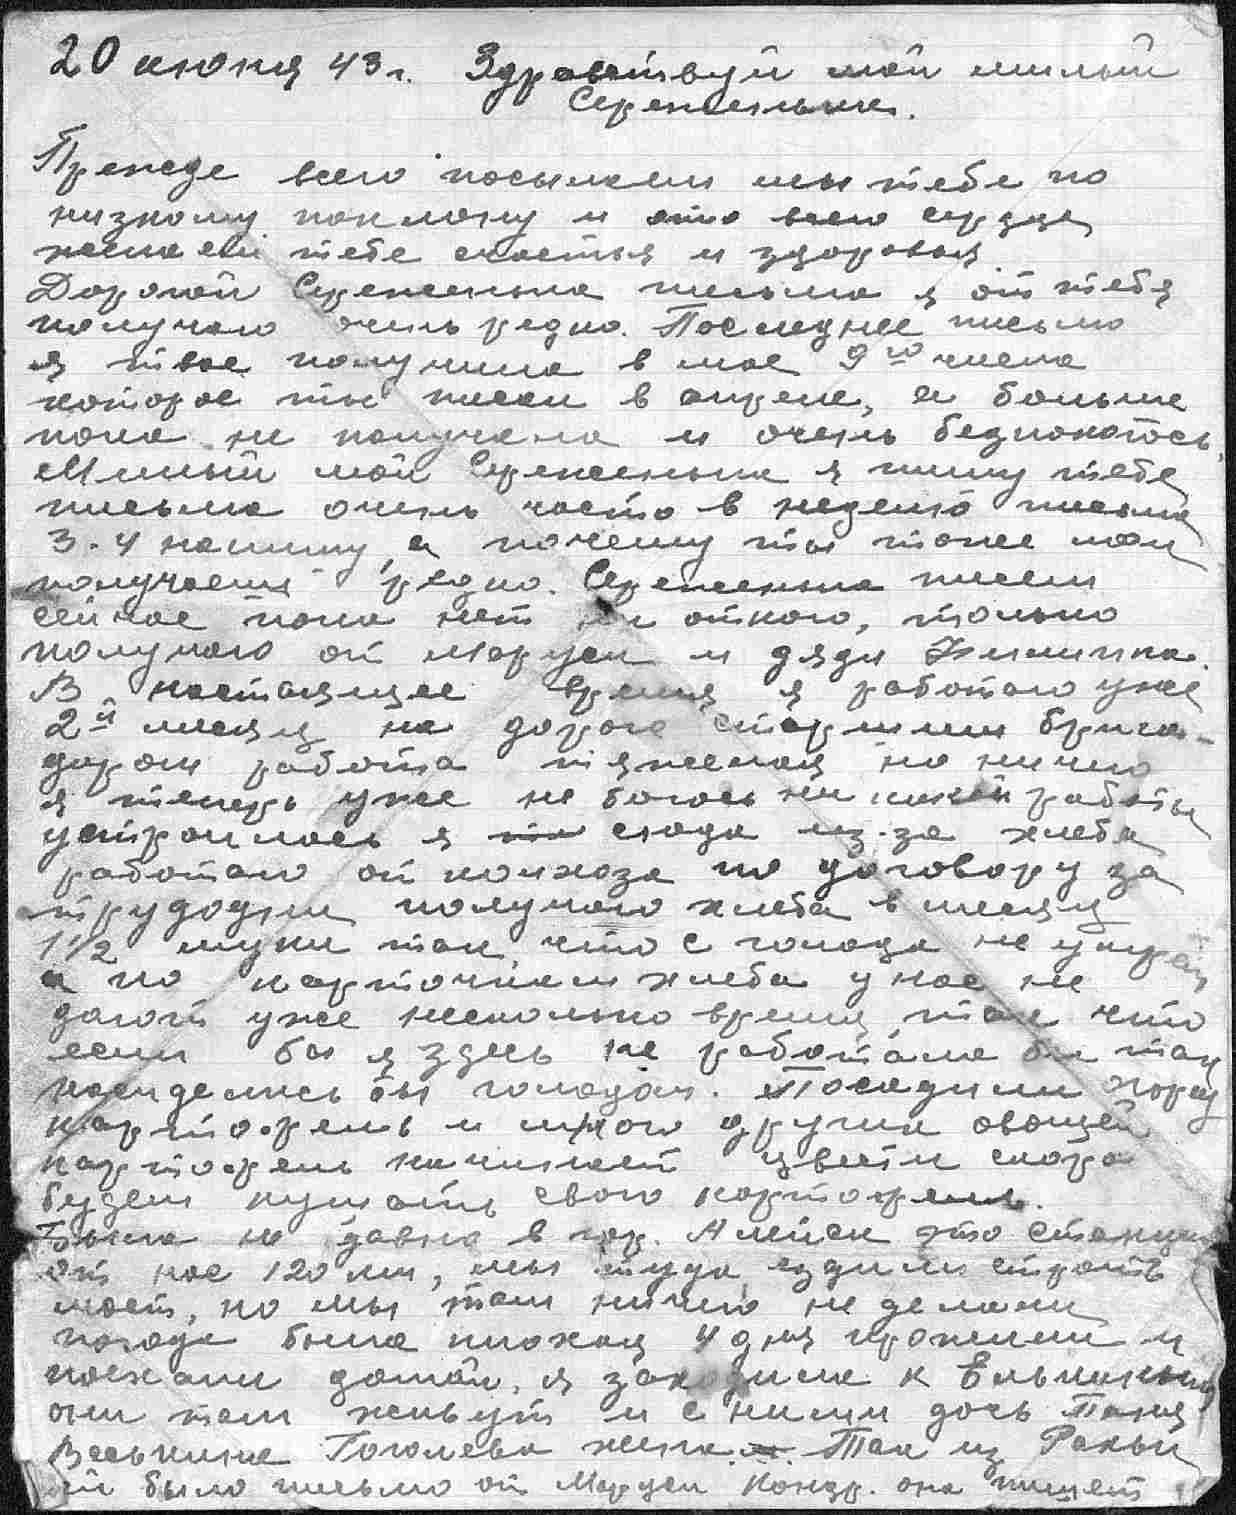 20 июня 43 г. Здравствуй мой милый
Сереженька.
Прежде всего посылаем мы тебе по
низкому поклону и ото всего сердца
желаем тебе счастья и здоровья.
Дорогой Сереженька письма я от тебя
получаю очень редко. Последнее письмо
я твое получила в мае 9го числа
которое ты писал в апреле, а больше
пока не получала и очень безпокоюсь.
Милый мой Сереженька я пишу тебе
письма очень часто в неделю письма
3-4 напишу, а почему ты тоже мои
получаеш редко. Сереженька писем
сейчас пока нет ни откого, только
получаю от Маруси и дяди Филиппа.
В настаящее время я работаю уже
2й месяц на дороге старшим брига-
диром работа тяжелая но ничего
я теперь уже не боюсь ни какой работы
устроилась я сюда из-за хлеба
работаю от колхоза по договору за
трудодни получаю хлеба в месяц
1 1/2 муки так, что с голода не умрем
а по карточкам хлеба у нас не
дают уже несколько время, так что
если бы я здесь не работала бы так
насиделись бы голодом. Посадили огород
картофель и много других овощей
картофель начинает цвести скоро
будем кушать свою картофель.
Была не давно в гор. Алейск это станция
от нас 120 км, мы туда ездили строить
мост, но мы там ничего не делали
погода была плохая 4 дня прожили и
поехали домой, я заходила к
они там живут и с ними дочь Таня
Гоголева жена. Так из
было письмо от Маруси Кондр. она пишет